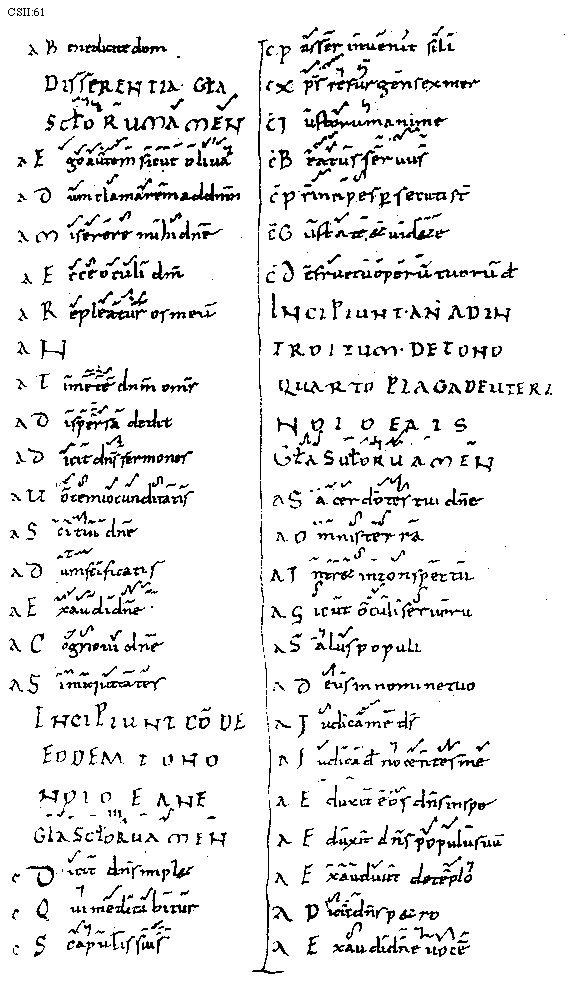 CSII:61
A B enedicite dom
DIFFERENTIA GLA
SCLORUM AMEN
A E go autem sicut oliva
A D um clamarem ad dnm
A M iserere mihi dne
A E cce oculi dni
A R epleatur os meu
A H
A T imete dnm oms
A D ispersa dedit
A D icit dns sermones
A U otem iocunditatis
A S citui dne
A D um scificatis
A E xaudi dne
A C ognovi dne
A S i iniquitates
INCIPIUNT CO DE
EODEM TONO
NOIOEANE
GLA SCLORU AMEN
C D icit dns imple
C Q ui meditabitur
C S capulis suis
C P asser invenit sibi
C X ps resurgens ex mor
C J ustorum anime
C B eatus servus
C P rincipes persecuti st
C G ustate & videte
C D e fructu operu tuoru d
INCIPIUNT AN AD IN
TROITUM DE TONO
QUARTO PLAGA DEUTERI
NOIOEAIS
GLA SCLORU AMEN
A S acerdotes tui dne
A O mnis terra
A I ntret in conspectu
A S icut oculi servoru
A S alus populi
A D eus in nomine tuo
A J udica me ds
A J udica d nocentes me
A E duxit eos dns in spe
A E duxit dns populu suu
A E xaudivit de templo
A D icit dns petro
A E xaudi dne voce